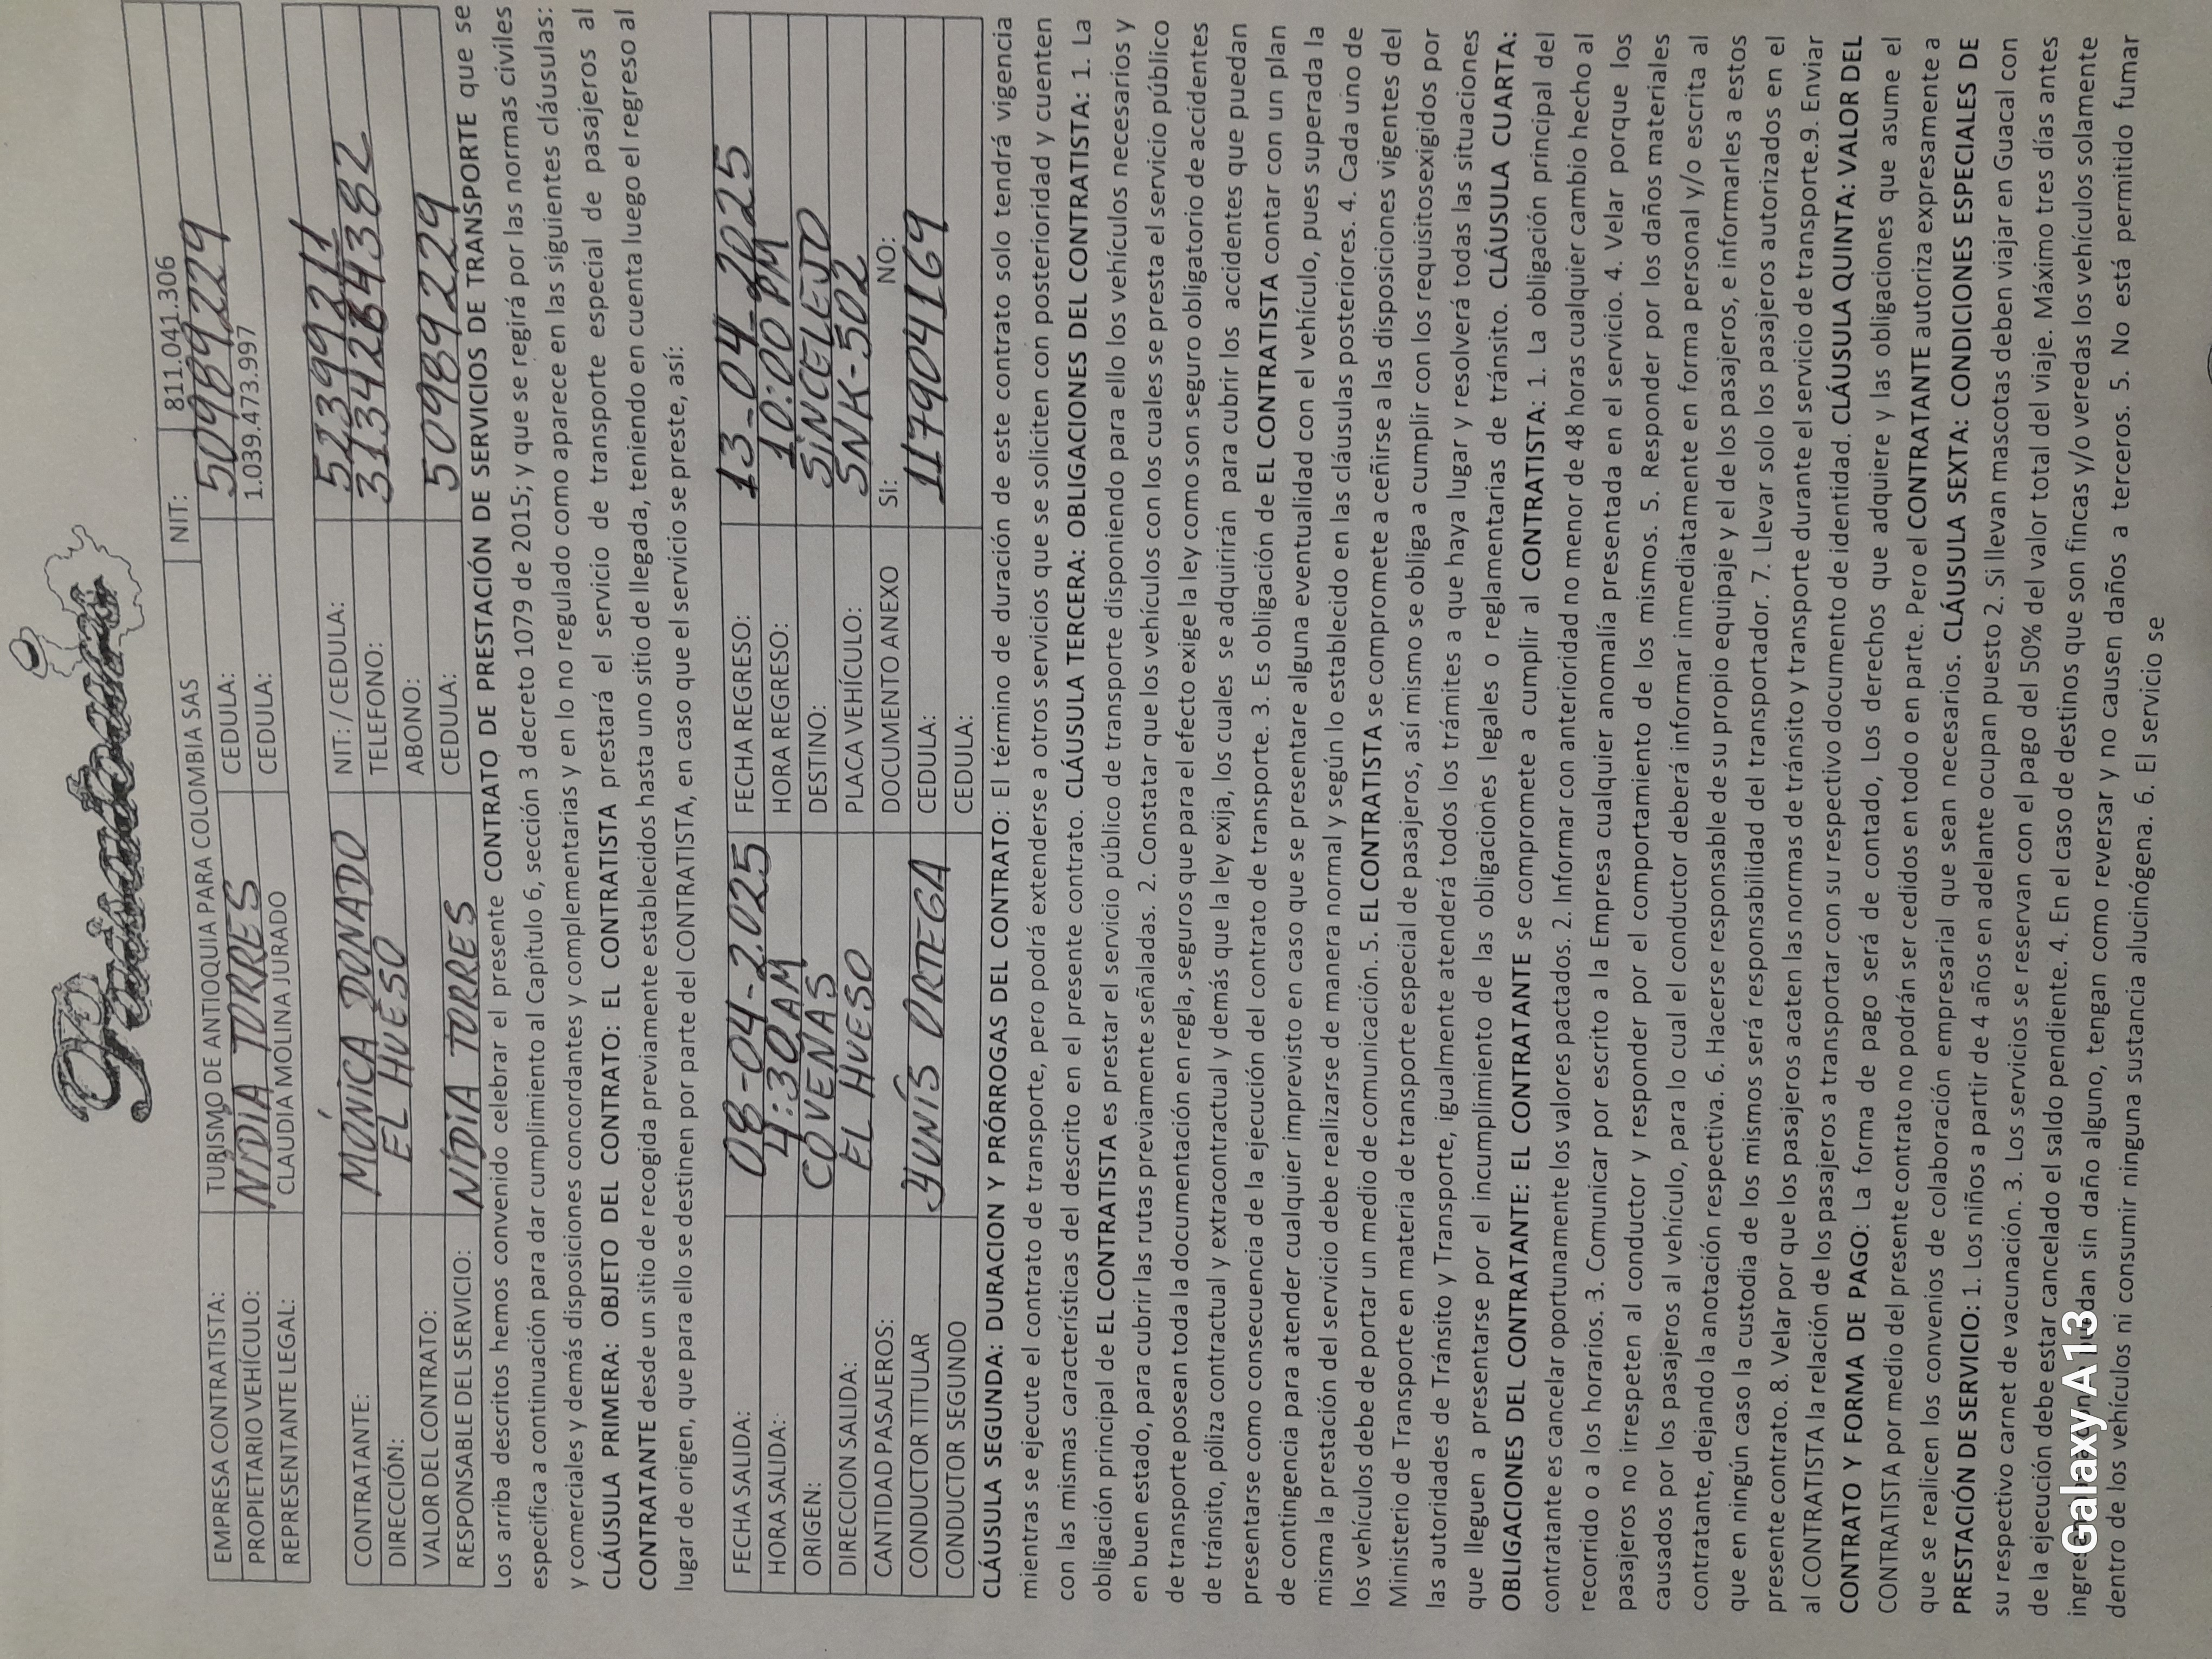 EMPRESA CONTRATISTA: TURISMO DE ANTIOQUIA PARA COLOMBIA SAS NIT: 811.041.306
PROPIETARIO VEHÍCULO: NIDIA TORRES CEDULA: 50989229
REPRESENTANTE LEGAL: CLAUDIA MOLINA JURADO CEDULA: 1.039.473.997
CONTRATANTE: MÓNICA DONADO NIT: / CEDULA: 52399211
DIRECCIÓN: EL HUESO TELEFONO: 3134264382
VALOR DEL CONTRATO: ABONO:
RESPONSABLE DEL SERVICIO: NIDIA TORRES CEDULA: 50989229
Los arriba descritos hemos convenido celebrar el presente CONTRATO DE PRESTACIÓN DE SERVICIOS DE TRANSPORTE que se
especifica a continuación para dar cumplimiento al Capítulo 6, sección 3 decreto 1079 de 2015; y que se regirá por las normas civiles
y comerciales y demás disposiciones concordantes y complementarias y en lo no regulado como aparece en las siguientes cláusulas:
CLÁUSULA PRIMERA: OBJETO DEL CONTRATO: EL CONTRATISTA prestará el servicio de transporte especial de pasajeros al
CONTRATANTE desde un sitio de recogida previamente establecidos hasta uno sitio de llegada, teniendo en cuenta luego el regreso al
lugar de origen, que para ello se destinen por parte del CONTRATISTA, en caso que el servicio se preste, así:
FECHA SALIDA: 08-04-2.025 FECHA REGRESO: 13-04-2025
HORA SALIDA: 4:30 AM HORA REGRESO: 10:00 PM
ORIGEN: COVEÑAS DESTINO: SINCELEJO
DIRECCION SALIDA: EL HUESO PLACA VEHÍCULO: SNK-502
CANTIDAD PASAJEROS: DOCUMENTO ANEXO SI: NO:
CONDUCTOR TITULAR YUNÍS ORTEGA CEDULA: 117904169
CONDUCTOR SEGUNDO CEDULA:
CLÁUSULA SEGUNDA: DURACION Y PRÓRROGAS DEL CONTRATO: El término de duración de este contrato solo tendrá vigencia
mientras se ejecute el contrato de transporte, pero podrá extenderse a otros servicios que se soliciten con posterioridad y cuenten
con las mismas características del descrito en el presente contrato. CLÁUSULA TERCERA: OBLIGACIONES DEL CONTRATISTA: 1. La
obligación principal de EL CONTRATISTA es prestar el servicio público de transporte disponiendo para ello los vehículos necesarios y
en buen estado, para cubrir las rutas previamente señaladas. 2. Constatar que los vehículos con los cuales se presta el servicio público
de transporte posean toda la documentación en regla, seguros que para el efecto exige la ley como son seguro obligatorio de accidentes
de tránsito, póliza contractual y extracontractual y demás que la ley exija, los cuales se adquirirán para cubrir los accidentes que puedan
presentarse como consecuencia de la ejecución del contrato de transporte. 3. Es obligación de EL CONTRATISTA contar con un plan
de contingencia para atender cualquier imprevisto en caso que se presentare alguna eventualidad con el vehículo, pues superada la
misma la prestación del servicio debe realizarse de manera normal y según lo establecido en las cláusulas posteriores. 4. Cada uno de
los vehículos debe de portar un medio de comunicación. 5. EL CONTRATISTA se compromete a ceñirse a las disposiciones vigentes del
Ministerio de Transporte en materia de transporte especial de pasajeros, así mismo se obliga a cumplir con los requisitosexigidos por
las autoridades de Tránsito y Transporte, igualmente atenderá todos los trámites a que haya lugar y resolverá todas las situaciones
que lleguen a presentarse por el incumplimiento de las obligaciones legales o reglamentarias de tránsito. CLÁUSULA CUARTA:
OBLIGACIONES DEL CONTRATANTE: EL CONTRATANTE se compromete a cumplir al CONTRATISTA: 1. La obligación principal del
contratante es cancelar oportunamente los valores pactados. 2. Informar con anterioridad no menor de 48 horas cualquier cambio hecho al
recorrido o a los horarios. 3. Comunicar por escrito a la Empresa cualquier anomalía presentada en el servicio. 4. Velar porque los
pasajeros no irrespeten al conductor y responder por el comportamiento de los mismos. 5. Responder por los daños materiales
causados por los pasajeros al vehículo, para lo cual el conductor deberá informar inmediatamente en forma personal y/o escrita al
contratante, dejando la anotación respectiva. 6. Hacerse responsable de su propio equipaje y el de los pasajeros, e informarles a estos
que en ningún caso la custodia de los mismos será responsabilidad del transportador. 7. Llevar solo los pasajeros autorizados en el
presente contrato. 8. Velar por que los pasajeros acaten las normas de tránsito y transporte durante el servicio de transporte.9. Enviar
al CONTRATISTA la relación de los pasajeros a transportar con su respectivo documento de identidad. CLÁUSULA QUINTA: VALOR DEL
CONTRATO Y FORMA DE PAGO: La forma de pago será de contado, Los derechos que adquiere y las obligaciones que asume el
CONTRATISTA por medio del presente contrato no podrán ser cedidos en todo o en parte. Pero el CONTRATANTE autoriza expresamente a
que se realicen los convenios de colaboración empresarial que sean necesarios. CLÁUSULA SEXTA: CONDICIONES ESPECIALES DE
PRESTACIÓN DE SERVICIO: 1. Los niños a partir de 4 años en adelante ocupan puesto 2. Si llevan mascotas deben viajar en Guacal con
su respectivo carnet de vacunación. 3. Los servicios se reservan con el pago del 50% del valor total del viaje. Máximo tres días antes
de la ejecución debe estar cancelado el saldo pendiente. 4. En el caso de destinos que son fincas y/o veredas los vehículos solamente
sin daño alguno, tengan como reversar y no causen daños a terceros. 5. No está permitido fumar
dentro de los vehículos ni consumir ninguna sustancia alucinógena. 6. El servicio se
Galaxy A13